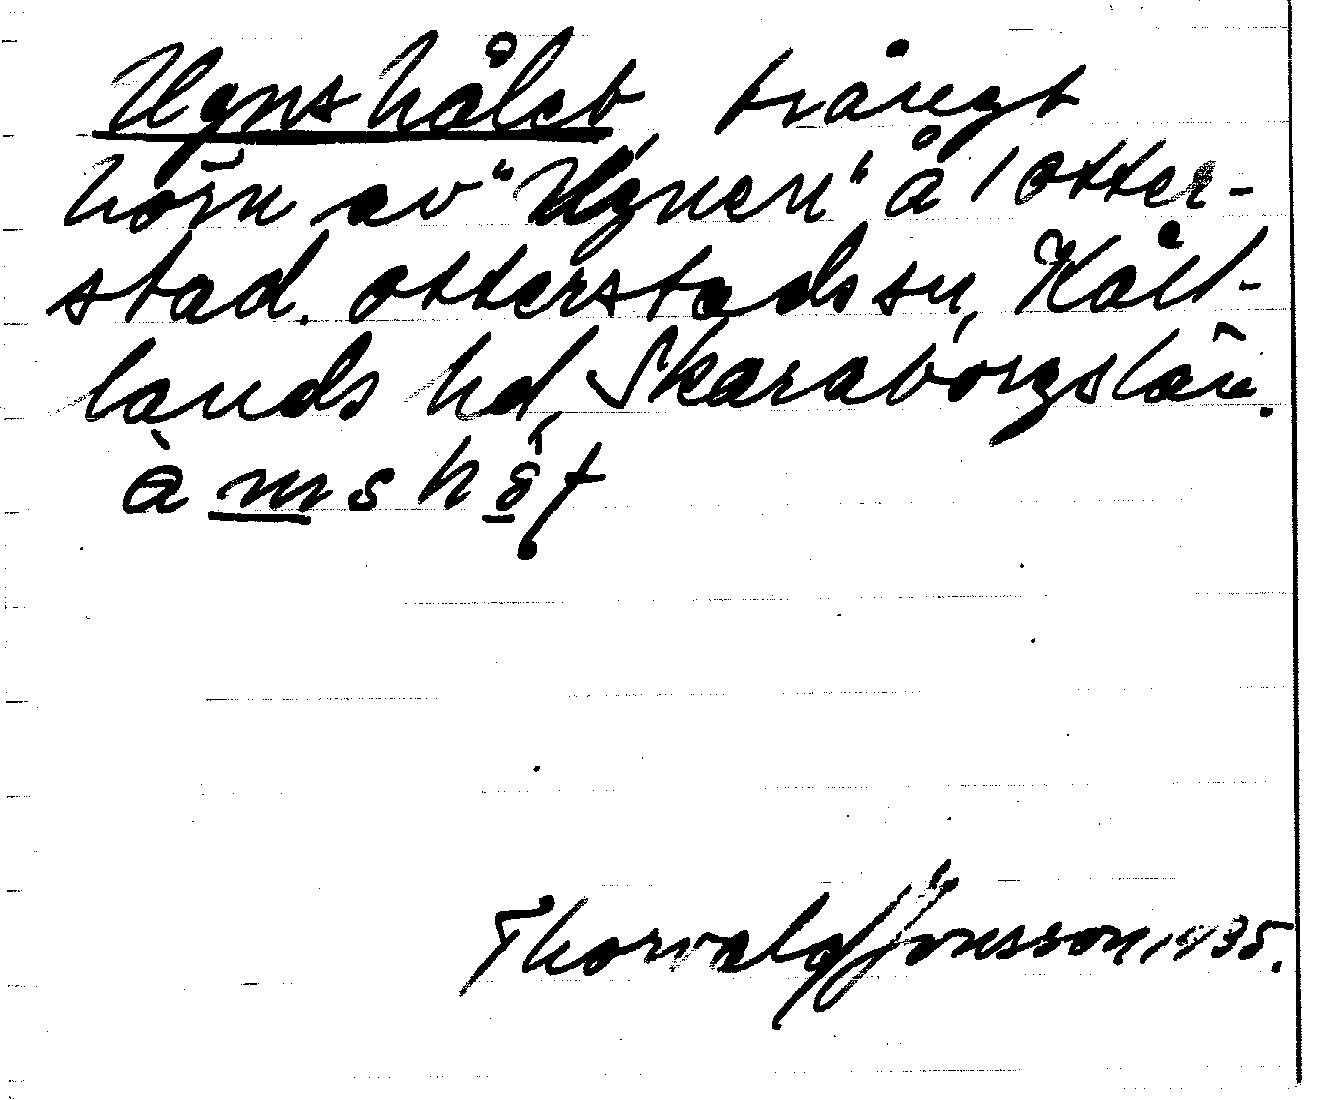 Ugnshålet, trångt
hörn av "Ugnen" å 1 Otter-
stad. Otterstads sn, Kål-
lands hd, Skaraborgs län.
Thorvald Jonsson 1935.